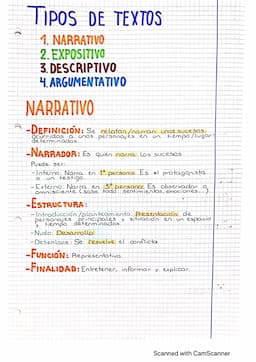 TIPOS DE TEXTOS
1. NARRATIVO
2. EXPOSITIVO
3. DESCRIPTIVO
4. ARGUMENTATIVO
NARRATIVO
-DEFINICIÓN: Se relatan/narran unos sucesos
ocurridos a unos personajes en un tiempo/lugar
determinados.
-NARRADOR: Es quien narra los sucesos
Puede ser:
-Interno: Narra en 1ª persona. Es el protagonista
o un testigo.
-Externo: Narra en 3ª persona. Es observador o
omnisciente (sabe todo: sentimientos, emociones...)
-ESTRUCTURA:
-Introducción/planteamiento: Presentación de
personajes principales y situación en un espacio
y tiempo determinados.
-Nudo: Desarrollo
-Desenlace: Se resuelve el conflicto.
-FUNCIÓN: Representativa.
-FINALIDAD: Entretener, informar y explicar.
Scanned with CamScanner